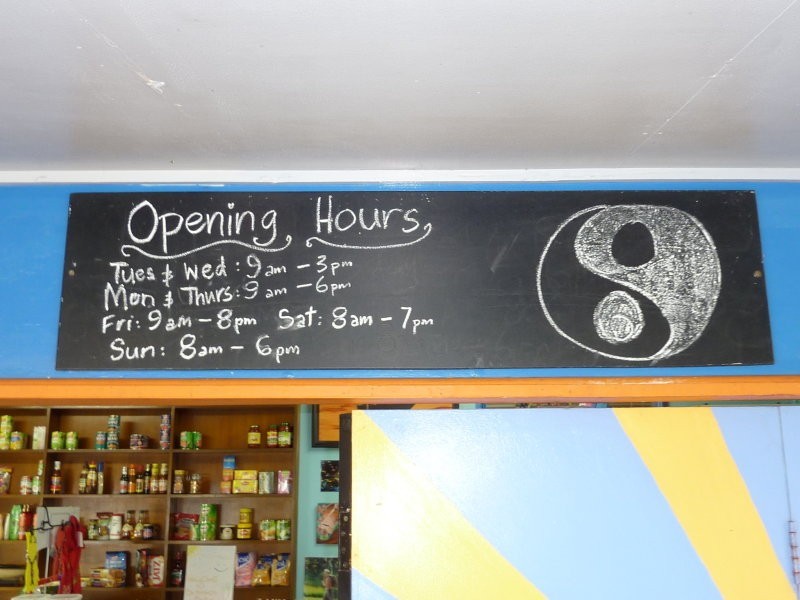 Opening Hours
Tues & Wed: 9am - 3pm
Mon & Thurs: 9am - 6pm
Fri: 9am - 8pm Sat: 8am - 7pm
Sun: 8am - 6pm
JATZ